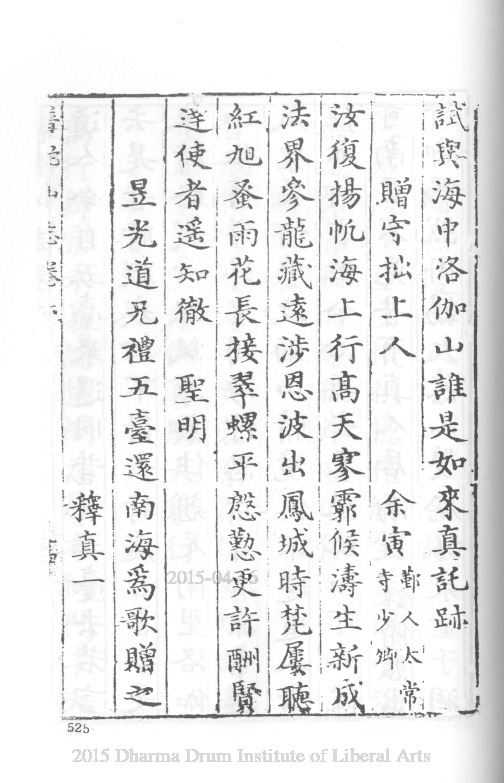 試與海中洛伽山誰是如來真託跡
贈守拙上人 余寅 鄞人太常寺少卿
汝復揚帆海上行高天寥霩候濤生新成
法界參龍藏遠涉恩波出鳳城時梵屢聴
紅旭蚤雨花長接翠螺平慇懃更許酬賢
逹使者遥知徹 聖明
昱光道兄禮五臺還南海爲歌贈之
釋真一
525
2015-04-16
2015 Dharma Drum Institute of Liberal Arts